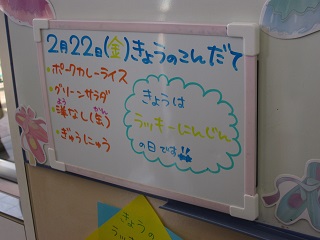 2月22日(金)きょうのこんだて
・ポークカレーライス
・グリーンサラダ
・洋なし(缶)
・ぎゅうにゅう
きょうは
ラッキーにんじん
の日です!!
きょうの
ラッ